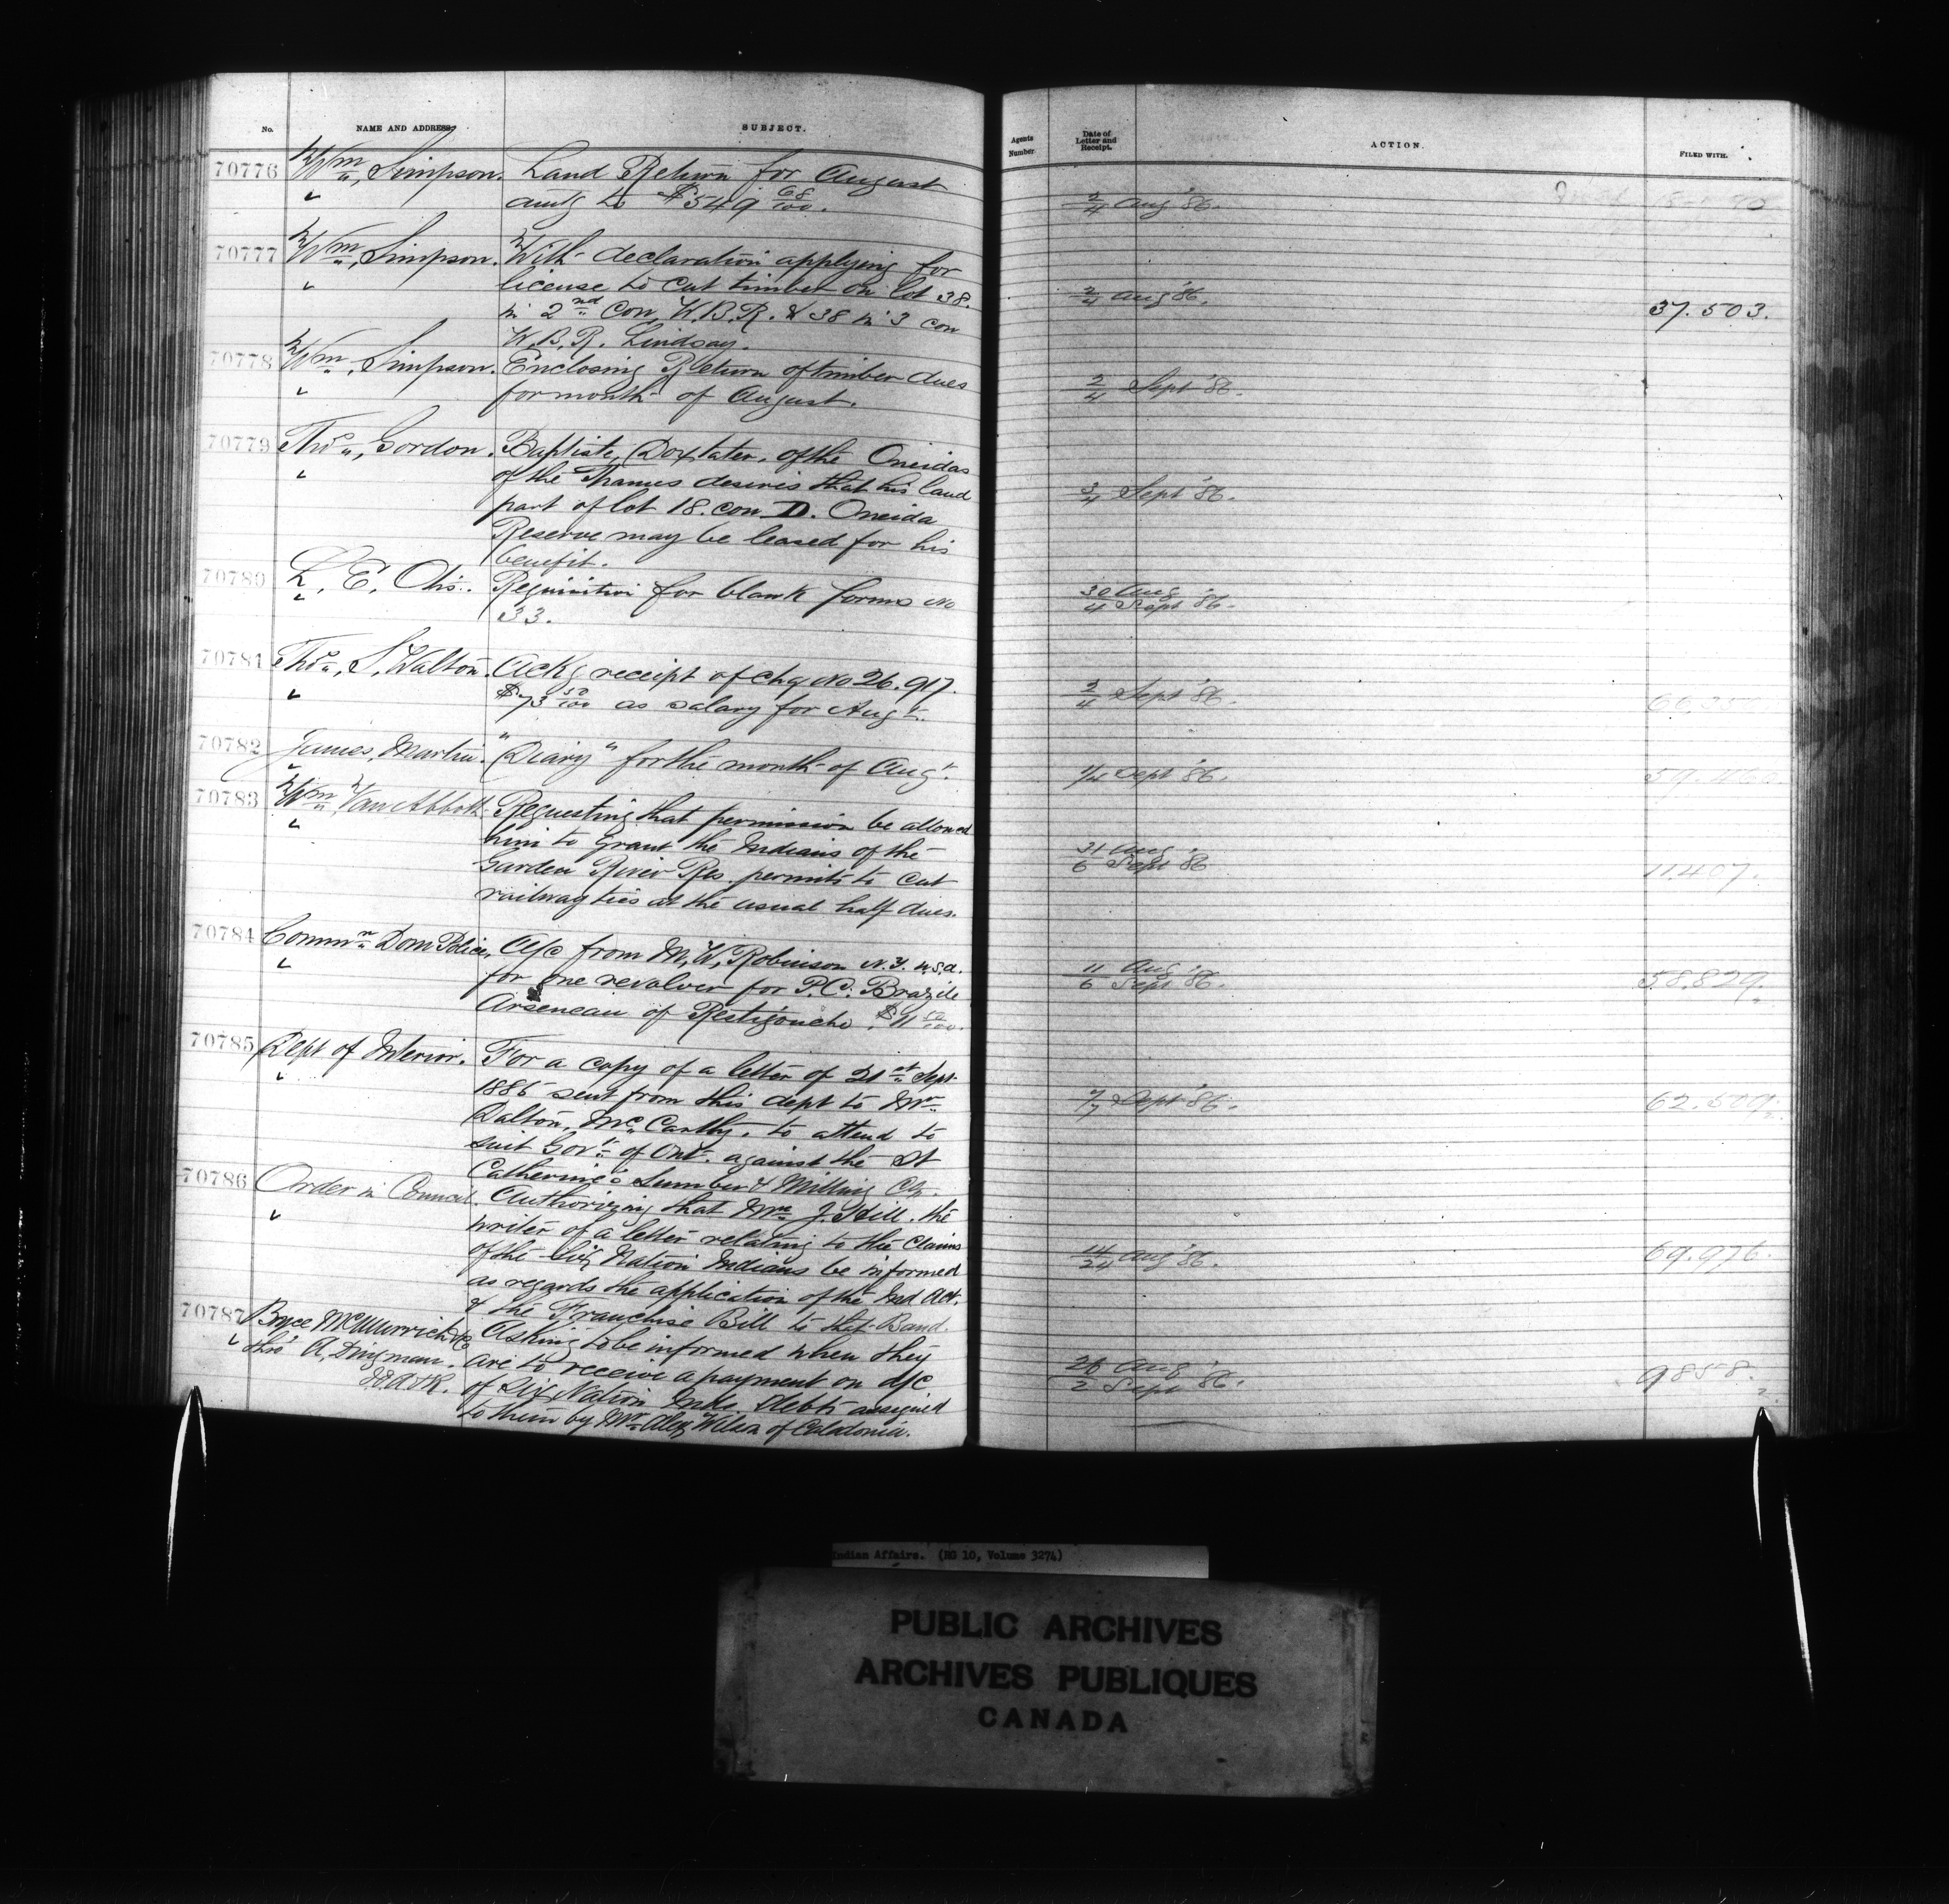 No. NAME AND ADDRESS. SUBJECT.
70776 Wm, Simpson. Land Return for August
amtg to $549 68/100.
70777 Wm, Simpson. With declaration applying for
license to cut timber on lot 38.
in 2nd Con, W.B.R. & 38 in 3 con
W.B.R. Lindsay.
70778 Wm, Simpson. Enclosing Return of timber dues
for month of August.
70779 Thos, Gordon. Baptiste, Doxtater, of the Oneidas
of the Thames desires that his land
part of lot 18. con D. Oneida
Reserve may be leased for his
benefit.
70780 L, E, Otis. Requisition for blank forms No
33.
70781 Thos, S, Walton. Ackg receipt of chq No 26.917.
$73 50/100 as salary for Augt.
70782 James, Martin. "Diary" for the month of Augt.
70783 Wm, Van Abbott. Requesting that permission be allowed
him to grant the Indians of the
Garden River Res. permits to cut
railway ties at the usual half dues.
70784 Commr Dom Police, A/c from M, W, Robinson N.Y. U.S.A.
for one revolver for P.C. Brazile
Arseneau of Restigouche. $11
70785 Dept of Interior. For a copy of a letter of 21st Sept.
1885 sent from this dept to Mr
Dalton, McCarthy, to attend to
suit Govt of Ont. against the St
Catherine's Lumber & Milling Co.
70786 Order in Council. Authorizing that Mr J. Hill, the
writer of a letter relating to the Claims
of the Six Nation Indians be informed
as regards the application of the Ind Act.
& the Franchise Bill to that Band.
70787 Bryce McMurrich & Co Asking to be informed when they
thro' A, Dingman. are to receive a payment on a/c
of Six Nation Inds. debts assigned
to them by Mr Alex Wilson of Caledonia.
Agents Number. Date of Letter and Receipt. ACTION. FILED WITH.
2/4 Aug '86.
2/4 Aug '86. 37.503.
2/4 Sept '86.
3/4 Sept '86.
30 Aug
4 Sept '86.
2/4 Sept '86.
1/4 Sept '86.
31 Aug
6 Sept '86 11.407.
11 Aug
6 Sept '86. 58.829.
Sept '86. 62.509.
14/24 Aug '86. 69.976.
26 Aug
2 Sept '86. 9858.
Indian Affairs. (RG 10, Volume 3274)
PUBLIC ARCHIVES
ARCHIVES PUBLIQUES
CANADA